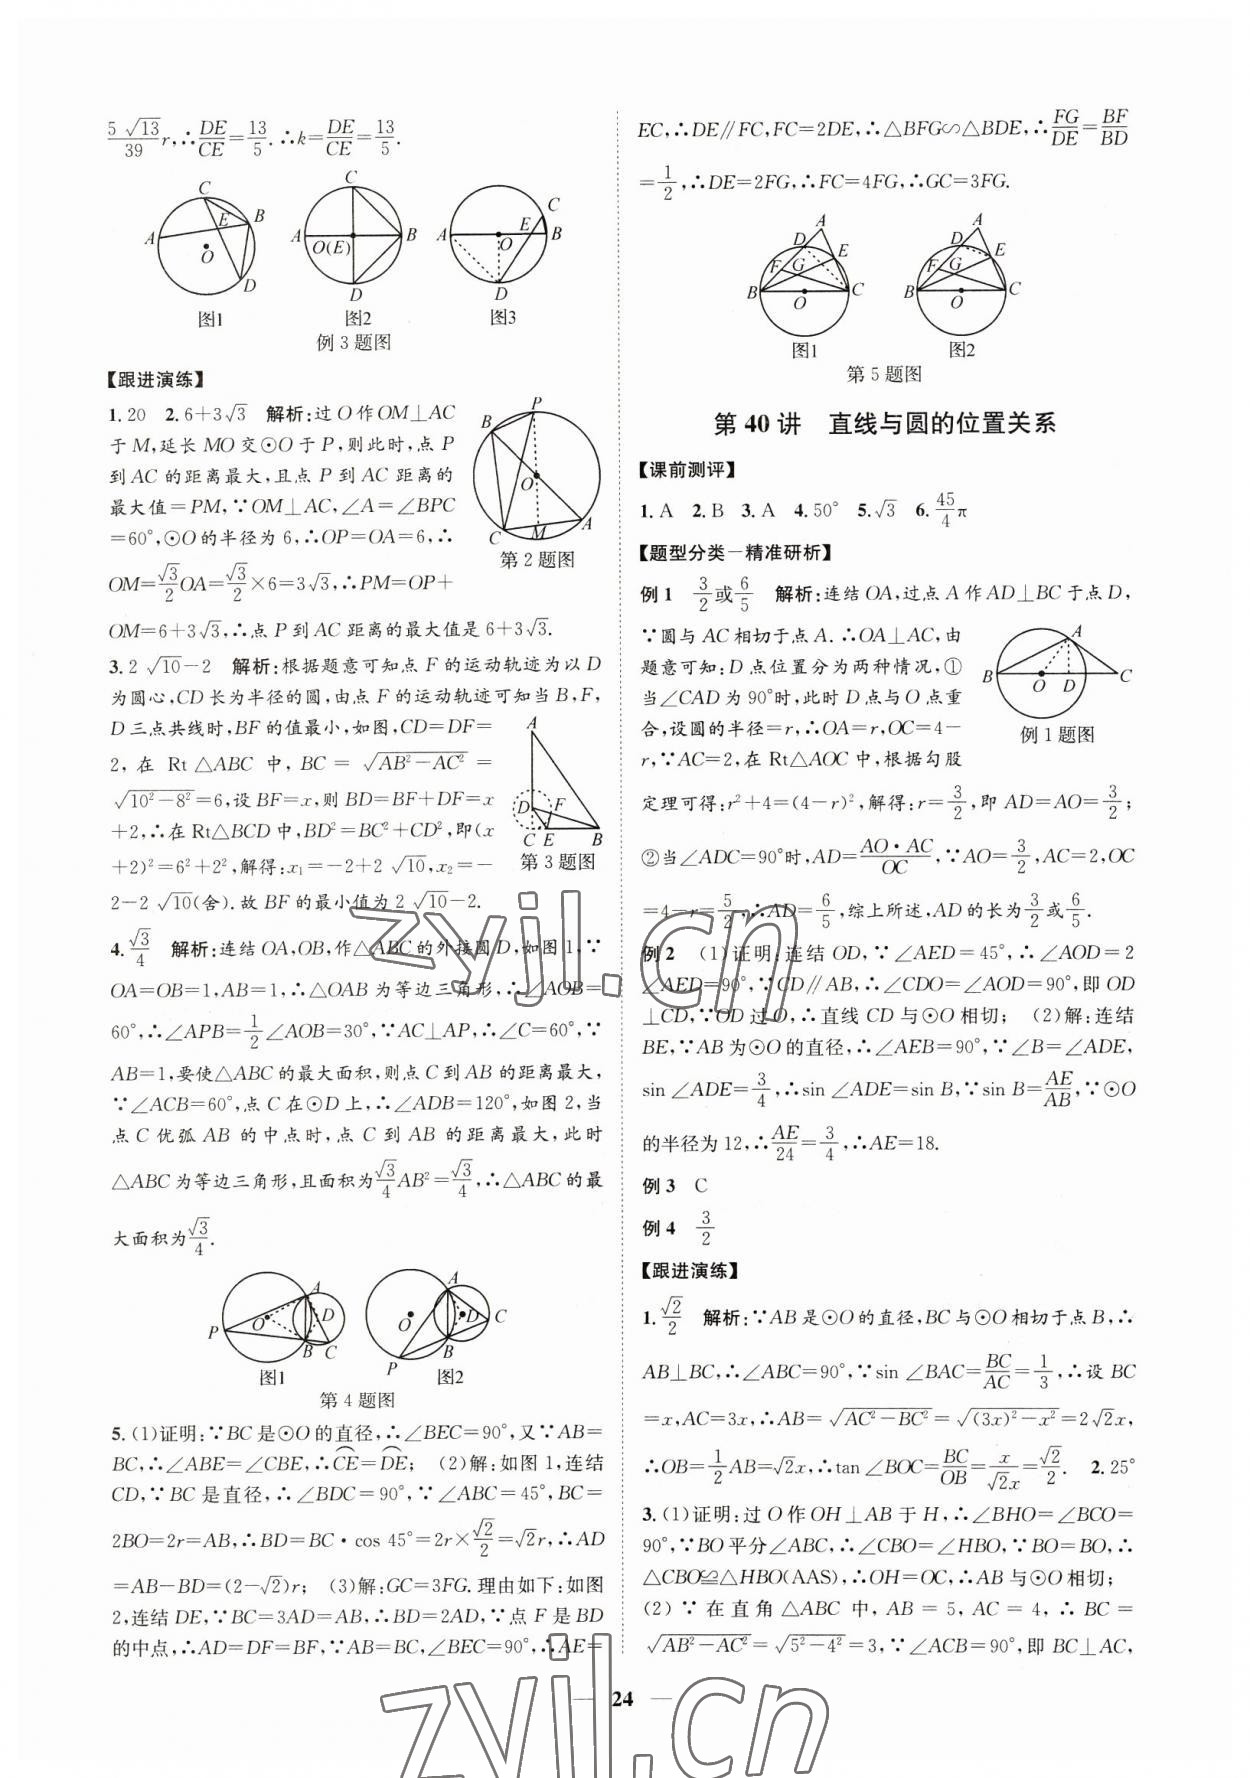 5√13/39 r,∴DE/CE=13/5.∴k=DE/CE=13/5.
C
E
B
A
O
D
图1
C
A
O(E)
B
D
图2
C
E
A
O
B
D
图3
例 3 题图
【跟进演练】
1.20 2.6+3√3 解析:过 O 作 OM⊥AC
于 M,延长 MO 交⊙O 于 P,则此时,点 P
到 AC 的距离最大,且点 P 到 AC 距离的
最大值=PM,∵OM⊥AC,∠A=∠BPC
=60°,⊙O 的半径为 6,∴OP=OA=6,∴
OM=√3/2OA=√3/2×6=3√3,∴PM=OP+
OM=6+3√3,∴点 P 到 AC 距离的最大值是 6+3√3.
P
B
O
C
M
A
第 2 题图
3.2√10-2 解析:根据题意可知点 F 的运动轨迹为以 D
为圆心,CD 长为半径的圆,由点 F 的运动轨迹可知当 B,F,
D 三点共线时,BF 的值最小,如图,CD=DF=
2,在 Rt△ABC 中,BC=√(AB²-AC²)=
√(10²-8²)=6,设 BF=x,则 BD=BF+DF=x
+2,∴在 Rt△BCD 中,BD²=BC²+CD²,即(x
+2)²=6²+2²,解得:x₁=-2+2√10,x₂=-
2-2√10(舍).故 BF 的最小值为 2√10-2.
A
D
F
C E
B
第 3 题图
4.√3/4 解析:连结 OA,OB,作△ABC 的外接圆 D,如图 1,∵
OA=OB=1,AB=1,∴△OAB 为等边三角形,∴∠AOB=
60°,∴∠APB=1/2∠AOB=30°,∵AC⊥AP,∴∠C=60°,∵
AB=1,要使△ABC 的最大面积,则点 C 到 AB 的距离最大,
∵∠ACB=60°,点 C 在⊙D 上,∴∠ADB=120°,如图 2,当
点 C 优弧 AB 的中点时,点 C 到 AB 的距离最大,此时
△ABC 为等边三角形,且面积为√3/4AB²=√3/4,∴△ABC 的最
大面积为√3/4.
A
O
D
P
B
C
图1
A
O
D
C
B
P
图2
第 4 题图
5.(1)证明:∵BC 是⊙O 的直径,∴∠BEC=90°,又∵AB=
BC,∴∠ABE=∠CBE,∴⌒CE=⌒DE; (2)解:如图 1,连结
CD,∵BC 是直径,∴∠BDC=90°,∵∠ABC=45°,BC=
2BO=2r=AB,∴BD=BC·cos 45°=2r×√2/2=√2r,∴AD
=AB-BD=(2-√2)r; (3)解:GC=3FG.理由如下:如图
2,连结 DE,∵BC=3AD=AB,∴BD=2AD,∵点 F 是 BD
的中点,∴AD=DF=BF,∵AB=BC,∠BEC=90°,∴AE=
EC,∴DE∥FC,FC=2DE,∴△BFG∽△BDE,∴FG/DE=BF/BD
=1/2,∴DE=2FG,∴FC=4FG,∴GC=3FG.
A
D
E
F
G
B
O
C
图1
A
D
E
F
G
B
O
C
图2
第 5 题图
第 40 讲 直线与圆的位置关系
【课前测评】
1.A 2.B 3.A 4.50° 5.√3 6.45/4π
【题型分类—精准研析】
例 1 3/2或6/5 解析:连结 OA,过点 A 作 AD⊥BC 于点 D,
∵圆与 AC 相切于点 A.∴OA⊥AC,由
题意可知:D 点位置分为两种情况,①
当∠CAD 为 90°时,此时 D 点与 O 点重
合,设圆的半径=r,∴OA=r,OC=4-
r,∵AC=2,在 Rt△AOC 中,根据勾股
A
B
O
D
C
例 1 题图
定理可得:r²+4=(4-r)²,解得:r=3/2,即 AD=AO=3/2;
②当∠ADC=90°时,AD=AO·AC/OC,∵AO=3/2,AC=2,OC
=4-r=5/2,∴AD=6/5,综上所述,AD 的长为3/2或6/5.
例 2 (1)证明:连结 OD,∵∠AED=45°,∴∠AOD=2
∠AED=90°,∵CD∥AB,∴∠CDO=∠AOD=90°,即 OD
⊥CD,∵OD 过 O,∴直线 CD 与⊙O 相切; (2)解:连结
BE,∵AB 为⊙O 的直径,∴∠AEB=90°,∵∠B=∠ADE,
sin ∠ADE=3/4,∴sin ∠ADE=sin B,∵sin B=AE/AB,∵⊙O
的半径为 12,∴AE/24=3/4,∴AE=18.
例 3 C
例 4 3/2
【跟进演练】
1.√2/2 解析:∵AB 是⊙O 的直径,BC 与⊙O 相切于点 B,∴
AB⊥BC,∴∠ABC=90°,∵sin ∠BAC=BC/AC=1/3,∴设 BC
=x,AC=3x,∴AB=√(AC²-BC²)=√((3x)²-x²)=2√2x,
∴OB=1/2AB=√2x,∴tan ∠BOC=BC/OB=x/√2x=√2/2. 2.25°
3.(1)证明:过 O 作 OH⊥AB 于 H,∴∠BHO=∠BCO=
90°,∵BO 平分∠ABC,∴∠CBO=∠HBO,∵BO=BO,∴
△CBO≌△HBO(AAS),∴OH=OC,∴AB 与⊙O 相切;
(2)∵在直角△ABC 中,AB=5,AC=4,∴BC=
√(AB²-AC²)=√(5²-4²)=3,∵∠ACB=90°,即 BC⊥AC,
24
zyjl.cn
zyjl.cn